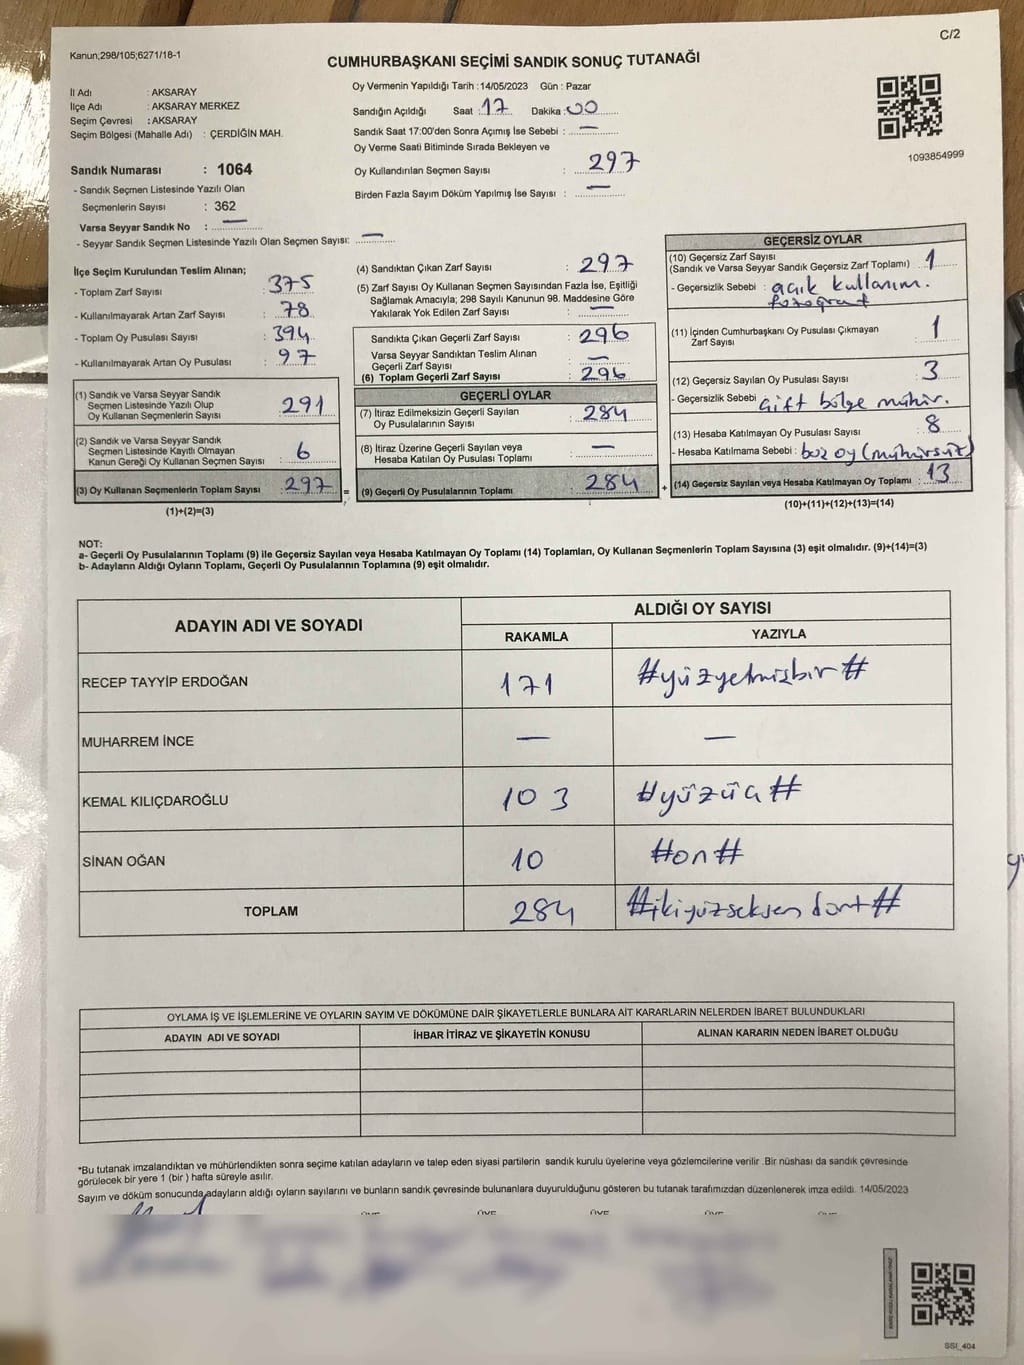 C/2
Kanun;298/105;6271/18-1
CUMHURBAŞKANI SEÇİMİ SANDIK SONUÇ TUTANAĞI
İl Adı : AKSARAY
İlçe Adı : AKSARAY MERKEZ
Seçim Çevresi : AKSARAY
Seçim Bölgesi (Mahalle Adı) : ÇERDİĞİN MAH.
Sandık Numarası : 1064
- Sandık Seçmen Listesinde Yazılı Olan
Seçmenlerin Sayısı : 362
Varsa Seyyar Sandık No : —
- Seyyar Sandık Seçmen Listesinde Yazılı Olan Seçmen Sayısı: —
Oy Vermenin Yapıldığı Tarih : 14/05/2023 Gün : Pazar
Sandığın Açıldığı Saat : 17 Dakika : 00
Sandık Saat 17:00'den Sonra Açımış İse Sebebi : —
Oy Verme Saati Bitiminde Sırada Bekleyen ve
Oy Kullandırılan Seçmen Sayısı : 297
Birden Fazla Sayım Döküm Yapılmış İse Sayısı : —
1093854999
İlçe Seçim Kurulundan Teslim Alınan;
- Toplam Zarf Sayısı : 375
- Kullanılmayarak Artan Zarf Sayısı : 78
- Toplam Oy Pusulası Sayısı : 394
- Kullanılmayarak Artan Oy Pusulası : 97
(1) Sandık ve Varsa Seyyar Sandık
Seçmen Listesinde Yazılı Olup
Oy Kullanan Seçmenlerin Sayısı : 291
(2) Sandık ve Varsa Seyyar Sandık
Seçmen Listesinde Kayıtlı Olmayan
Kanun Gereği Oy Kullanan Seçmen Sayısı : 6
(3) Oy Kullanan Seçmenlerin Toplam Sayısı : 297 =
(1)+(2)=(3)
(4) Sandıktan Çıkan Zarf Sayısı : 297
(5) Zarf Sayısı Oy Kullanan Seçmen Sayısından Fazla İse, Eşitliği
Sağlamak Amacıyla; 298 Sayılı Kanunun 98. Maddesine Göre
Yakılarak Yok Edilen Zarf Sayısı : —
Sandıkta Çıkan Geçerli Zarf Sayısı : 296
Varsa Seyyar Sandıktan Teslim Alınan
Geçerli Zarf Sayısı : —
(6) Toplam Geçerli Zarf Sayısı : 296
GEÇERLİ OYLAR
(7) İtiraz Edilmeksizin Geçerli Sayılan
Oy Pusulalarının Sayısı : 284
(8) İtiraz Üzerine Geçerli Sayılan veya
Hesaba Katılan Oy Pusulası Toplamı : —
(9) Geçerli Oy Pusulalarının Toplamı : 284 +
GEÇERSİZ OYLAR
(10) Geçersiz Zarf Sayısı
(Sandık ve Varsa Seyyar Sandık Geçersiz Zarf Toplamı) : 1
- Geçersizlik Sebebi : açık kullanım.
fotoğraf
(11) İçinden Cumhurbaşkanı Oy Pusulası Çıkmayan
Zarf Sayısı : 1
(12) Geçersiz Sayılan Oy Pusulası Sayısı : 3
- Geçersizlik Sebebi : Çift bölge mühür.
(13) Hesaba Katılmayan Oy Pusulası Sayısı : 8
- Hesaba Katılmama Sebebi : boz oy (mühürsüz)
(14) Geçersiz Sayılan veya Hesaba Katılmayan Oy Toplamı : 13
(10)+(11)+(12)+(13)=(14)
NOT:
a- Geçerli Oy Pusulalarının Toplamı (9) ile Geçersiz Sayılan veya Hesaba Katılmayan Oy Toplamı (14) Toplamları, Oy Kullanan Seçmenlerin Toplam Sayısına (3) eşit olmalıdır. (9)+(14)=(3)
b- Adayların Aldığı Oyların Toplamı, Geçerli Oy Pusulalarının Toplamına (9) eşit olmalıdır.
ADAYIN ADI VE SOYADI ALDIĞI OY SAYISI
RAKAMLA YAZIYLA
RECEP TAYYİP ERDOĞAN 171 #yüzyetmişbir#
MUHARREM İNCE — —
KEMAL KILIÇDAROĞLU 103 #yüzüç#
SİNAN OĞAN 10 #on#
TOPLAM 284 #ikiyüzseksen dört#
OYLAMA İŞ VE İŞLEMLERİNE VE OYLARIN SAYIM VE DÖKÜMÜNE DAİR ŞİKAYETLERLE BUNLARA AİT KARARLARIN NELERDEN İBARET BULUNDUKLARI
ADAYIN ADI VE SOYADI İHBAR İTİRAZ VE ŞİKAYETİN KONUSU ALINAN KARARIN NEDEN İBARET OLDUĞU
*Bu tutanak imzalandıktan ve mühürlendikten sonra seçime katılan adayların ve talep eden siyasi partilerin sandık kurulu üyelerine veya gözlemcilerine verilir .Bir nüshası da sandık çevresinde
görülecek bir yere 1 (bir ) hafta süreyle asılır.
Sayım ve döküm sonucunda,adayların aldığı oyların sayılarını ve bunların sandık çevresinde bulunanlara duyurulduğunu gösteren bu tutanak tarafımızdan düzenlenerek imza edildi. 14/05/2023
SSI_404